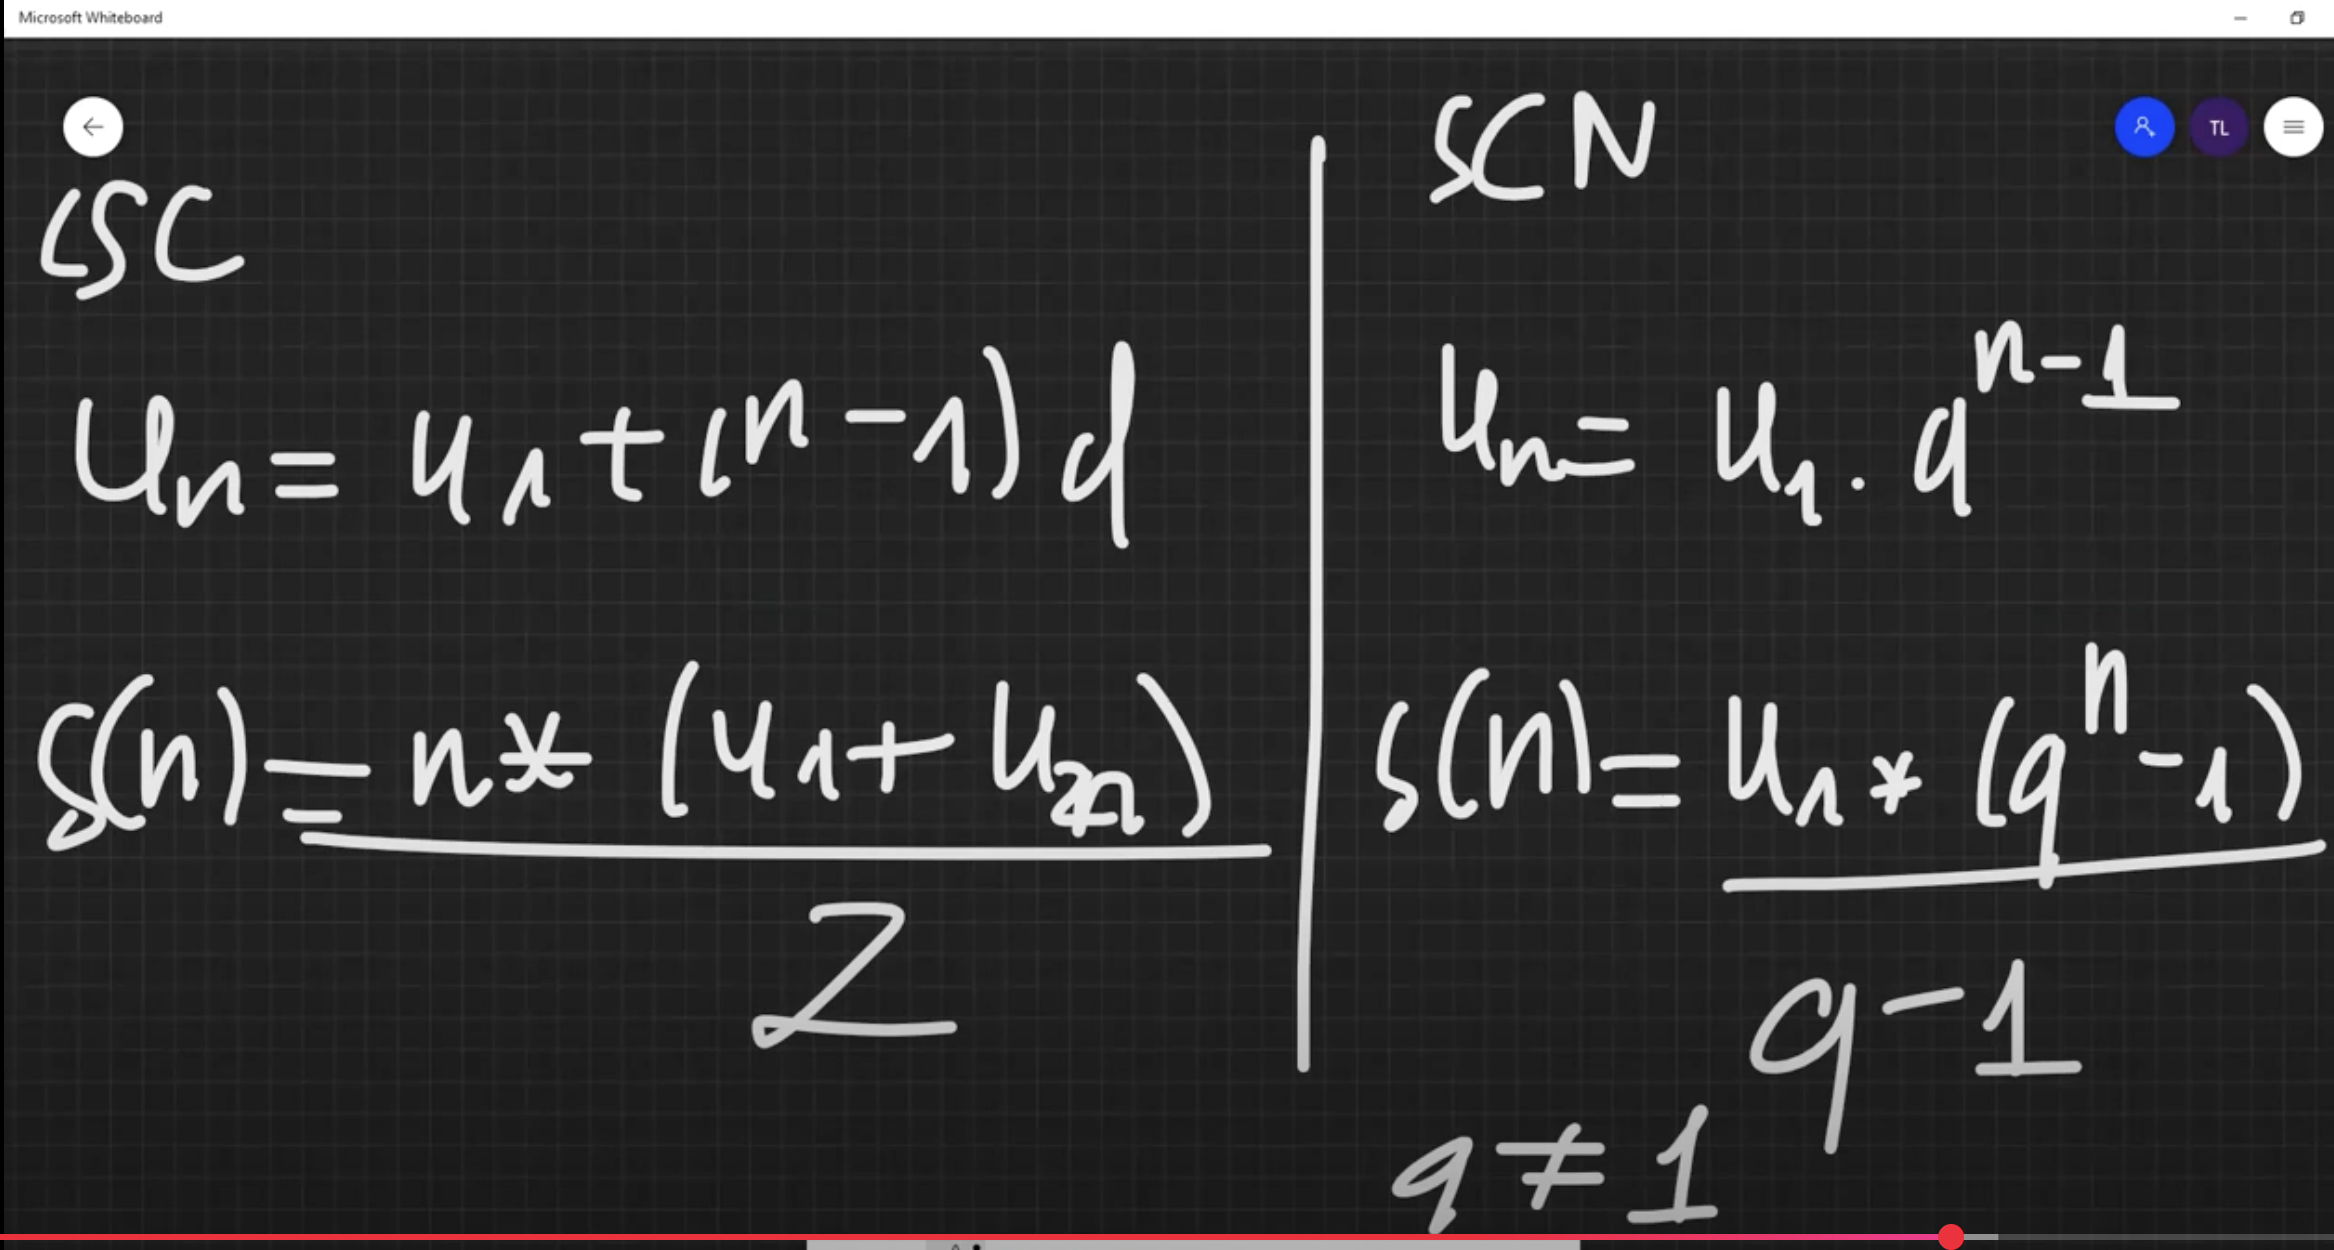 Microsoft Whiteboard
TL
CSC
Un = u1 + (n-1)d
S(n) = n* (u1 + Un)
2
SCN
Un = U1 . q^n-1
S(n) = U1 * (q^n - 1)
q-1
q ≠ 1